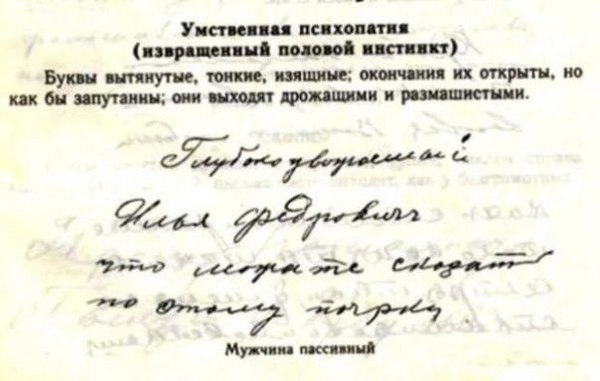 Умственная психопатия
(извращенный половой инстинкт)
Буквы вытянутые, тонкие, изящные; окончания их открыты, но
как бы запутанны; они выходят дрожащими и размашистыми.
Глубокоуважаемый
Илья Федрович
что можате сказат
по этому почрку
Мужчина пассивный